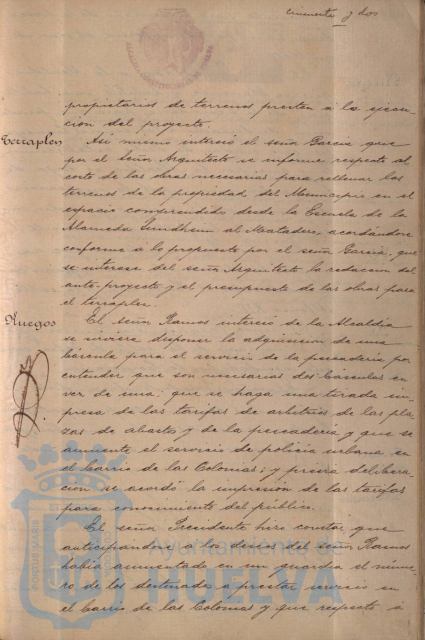 cincuenta y dos
propietarios de terrenos presten á la ejecu-
ción del proyecto.
Terraplen
Así mismo interesó el señor Garcia que
por el Señor Arquitecto se informe respecto al
coste de las obras necesarias para rellenar los
terrenos de la propiedad del Municipio en el
espacio comprendido desde la Escuela de la
Alameda Sundheim al Matadero, acordándose
conforme á lo propuesto por el señor Garcia, que
se interese del señor Arquitecto la redaccion del
ante-proyecto y el presupuesto de las obras para
el terraplen.
Ruegos
El señor Ramos interesó de la Alcaldía
se sirviera disponer la adquisicion de una
báscula para el servicio de la pescadería por
entender que son necesarias dos básculas en
vez de una; que se haga una tirada im-
presa de las tarifas de arbitrios de las pla-
zas de abastos y de la pescadería y que se
aumente el servicio de policía urbana en
el barrio de las Colonias; y previa delibera-
cion se acordó la impresión de las tarifas
para conocimiento del público.
El señor Presidente hizo constar que
anticipandose á los deseos del señor Ramos
había aumentado en un guardia el núme-
ro de los destinados a prestar servicio en
el barrio de las Colonias y que respecto á
Ayuntamiento de
HUELVA